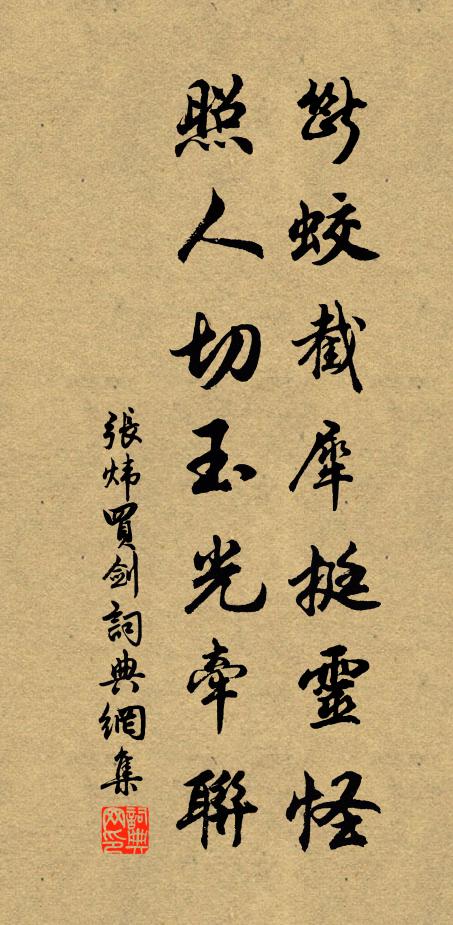 斷蛟截犀挺靈怪
照人切玉光牽聯
張煒買劍詞典網集
詞典網印